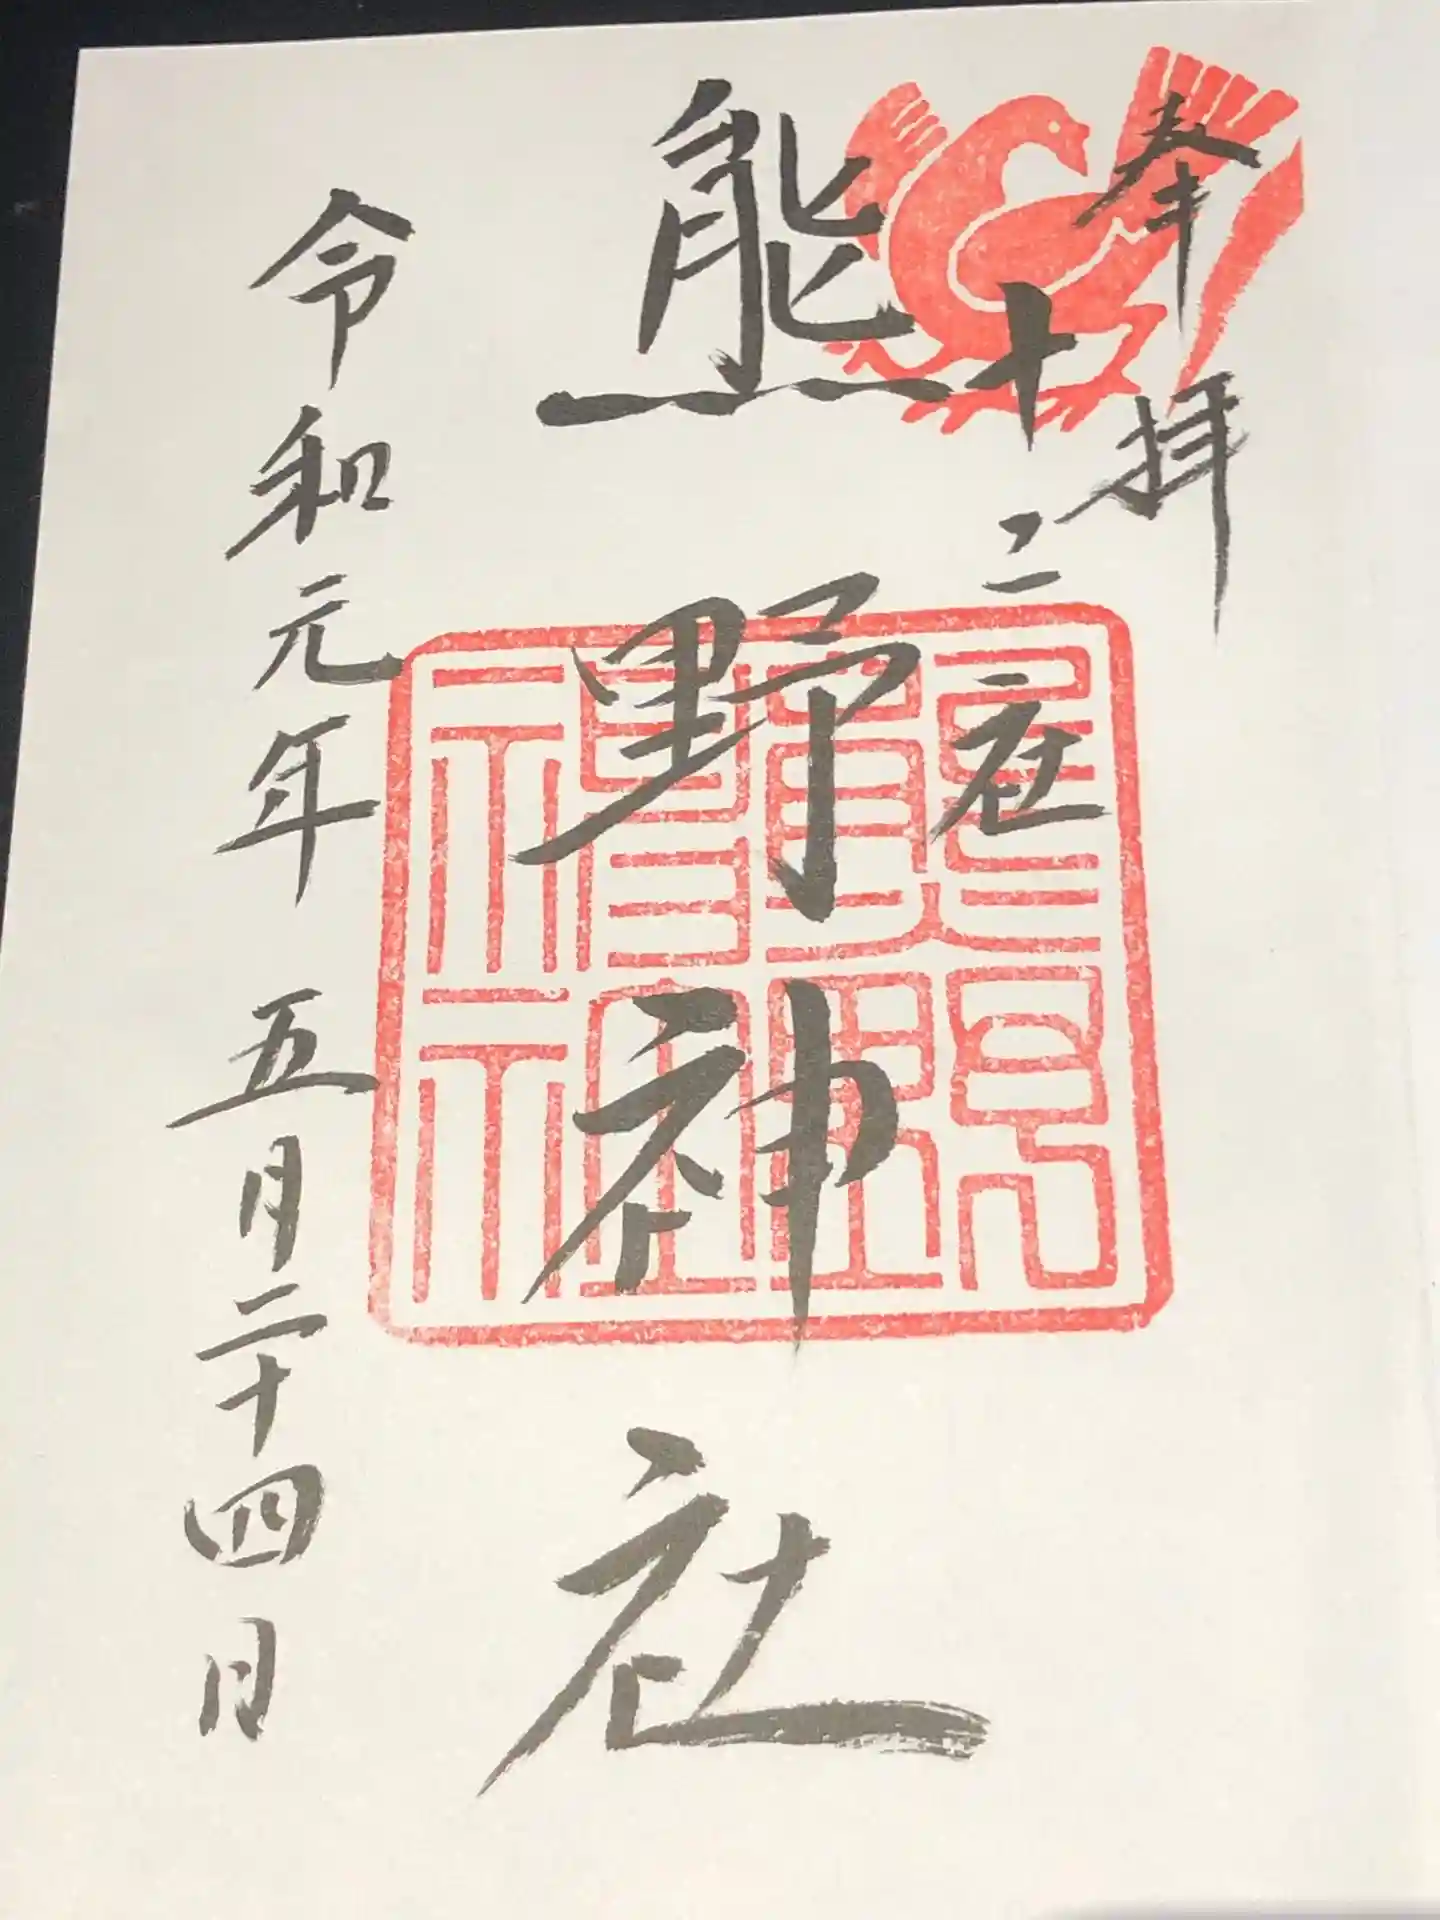 奉拝
十二社
熊野神社
令和元年 五月二十四日